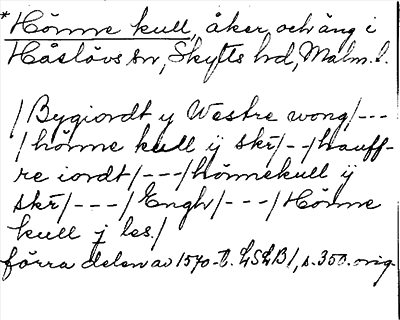 *Hönne kull, åker och äng i
Håslövs sn, Skytts hd, Malm. l.
/Bygiordt y Westre wong/---
/hönne kull ÿ skr̄/--/hauff-
re iordt/---/hönnekull ÿ
skr̄/---/Engh/---/Hönne
kull j les./
förra delen av 1570-t. LSLB1, s. 350. orig.